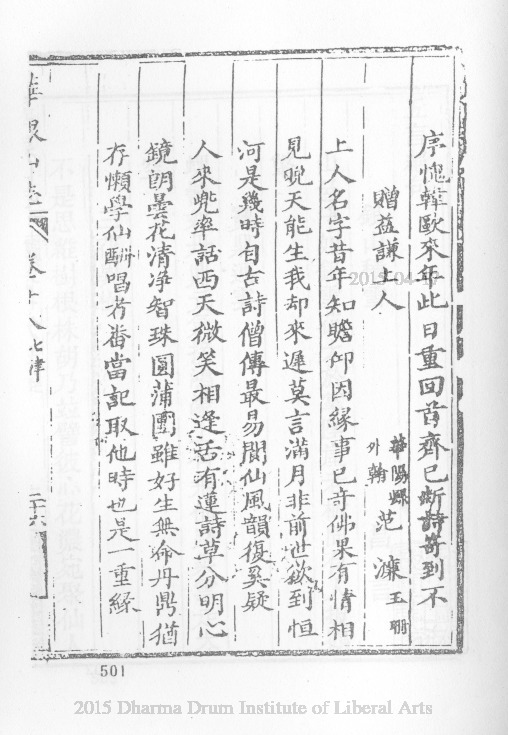 序愧韓歐來年此日重回首齊已斷詩寄到不
贈益謙上人 華陽縣外翰 范濂 玉珊
上人名字昔年知瞻仰因緣事已奇佛果有情相
見晩天能生我却來遲莫言滿月非前世欲到恒
河是幾時自古詩僧傳最易閬仙風韻復奚疑
人來兜率話西天微笑相逢舌有蓮詩草分明心
鏡朗曇花清净智珠圓蒲團雖好生無分丹鼎猶
存懶學仙酬唱者番當記取他時也是一重緣
華銀山志 卷十八 七律 二十六
501
2015 Dharma Drum Institute of Liberal Arts